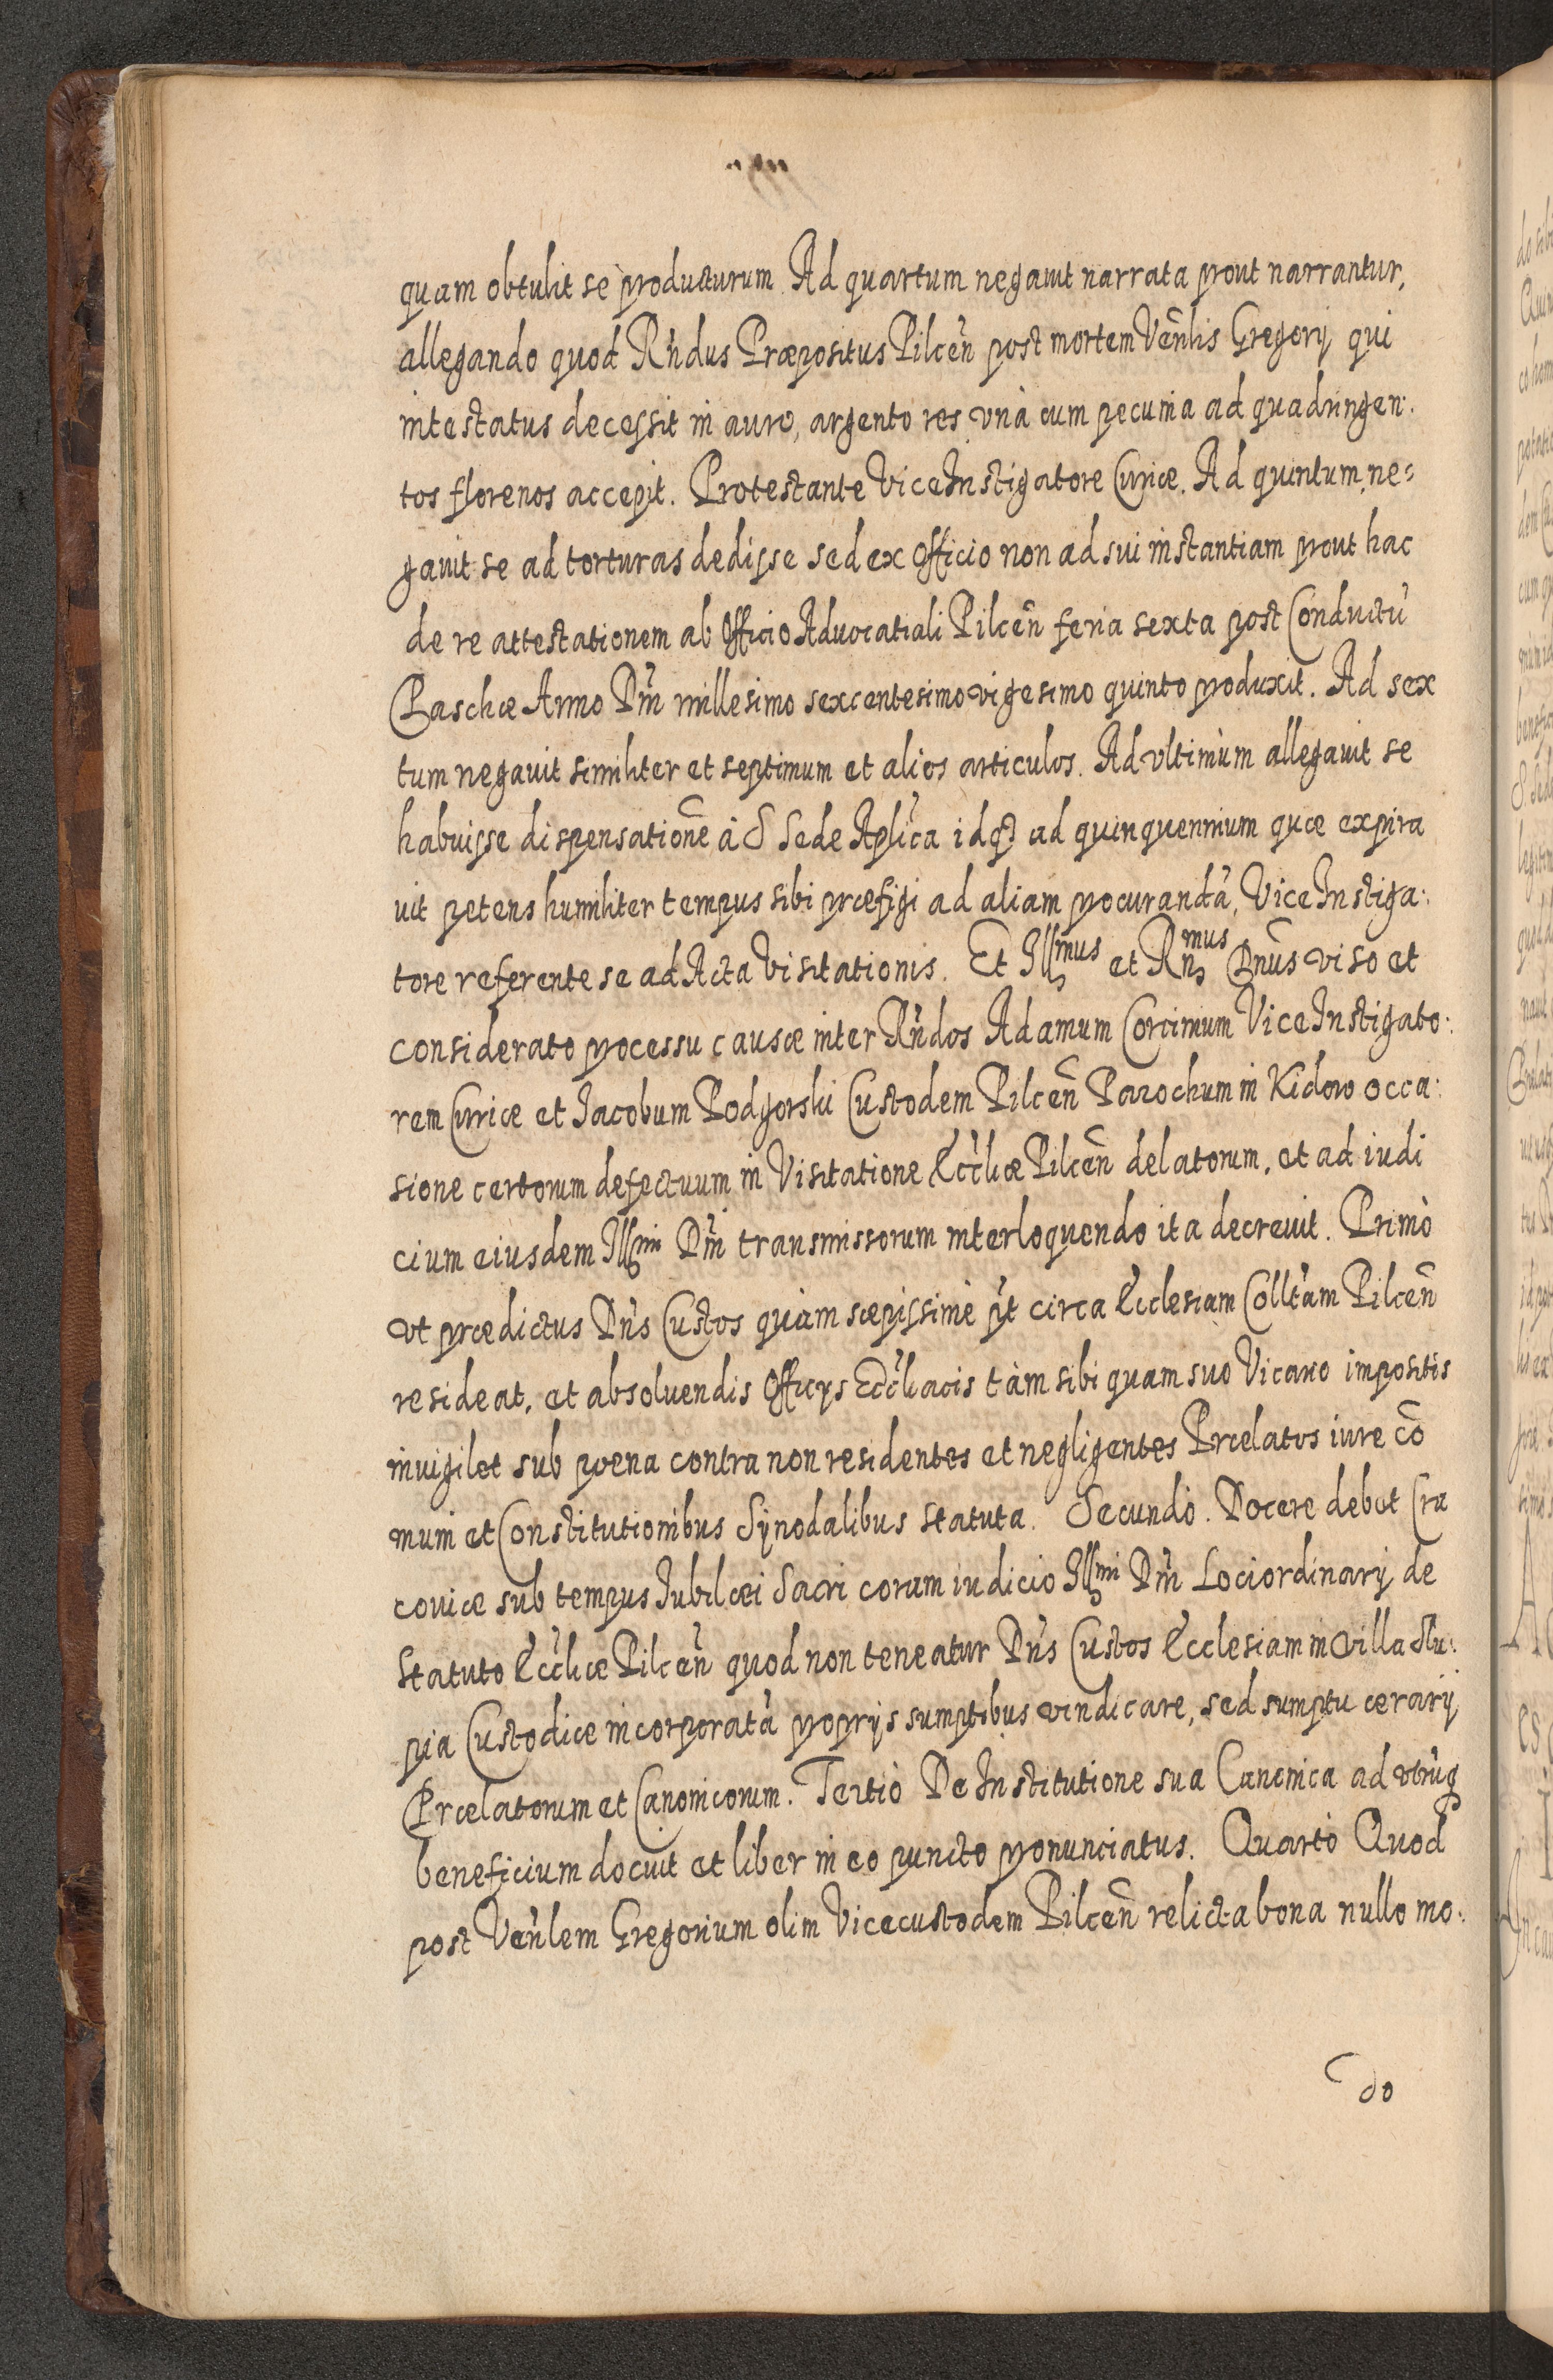 quam obtulit se producturum. Ad quartum negauit narrata prout narrantur,
allegando quod Rndus Præpositus Pilcen̄ post mortem Venlis Gregorij qui
intestatus decessit in auro, argento res vnà cum pecunia ad quadringen:
tos florenos accepit. Protestante ViceInstigatore Curiæ. Ad quintum ne⸗
gauit se ad torturas dedisse sed ex Officio non ad sui instantiam prout hac
de re attestationem ab Officio Aduocatiali Pilcen̄ feria sexta post Conductū
Paschæ Anno Dni millesimo sexcentesimo vigesimo quinto produxit. Ad sex
tum negauit similiter et septimum et alios articulos. Ad vltimum allegauit se
habuisse dispensationē à S Sede Aplica idq₃ ad quinquennium quæ expira
uit petens humiliter tempus sibi præfigi ad aliam procurandā, ViceInstiga:
tore referente se ad Acta Visitationis. Et Illmus et Rnmus Dnus viso et
considerato processu causæ inter Rndos Adamum Corcimum ViceInstigato:
rem Curiæ et Jacobum Podgorski Custodem Pilcen̄ Parochum in Kidow occa:
sione certorum defectuum in Visitatione Eccliæ Pilcen̄ delatorum, et ad iudi
cium eiusdem Illmi Dni transmissorum interloquendo ita decreuit. Primò
vt prædictus Dns Custos quàm sæpissimè pt circa Ecclesiam Colltam Pilcen̄
resideat, et absoluendis Officijs Eccliacis tàm sibi quam suo Vicario impositis
inuigilet sub poena contra non residentes et negligentes Prælatos iure cō
muni et Constitutionibus Synodalibus statuta. Secundò. Docere debet Cra
couiæ sub tempus Jubilæi Sacri coram iudicio Illmi Dni Lociordinarij de
statuto Ecclicæ Pilcen̄ quod non teneatur Dns Custos Ecclesiam in villa Slu:
pia Custodiæ incorporatā proprijs sumptibus vindicare, sed sumptu cerarij
Prælatorum et Canonicorum. Tertiò De Institutione sua Canonica ad vtrūq
beneficium docuit et liber in eo puncto pronunciatus. Quartò Quod
post Venlem Gregorium olim Vicecustodem Pilcen̄ relicta bona nullo mo:
do